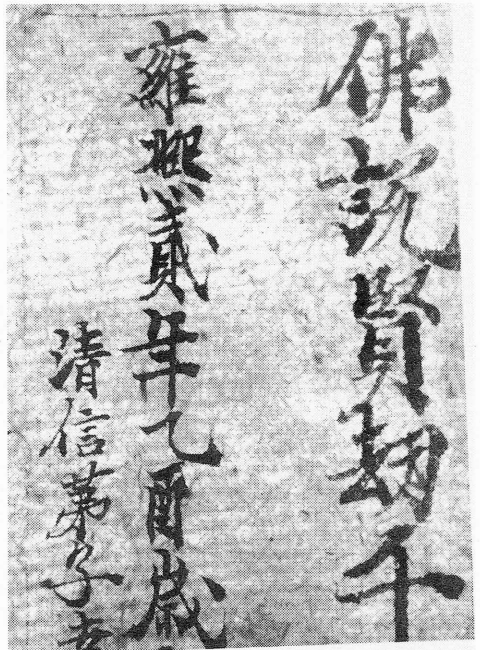 佛説賢劫千
雍熙貳年乙酉歳
清信弟子